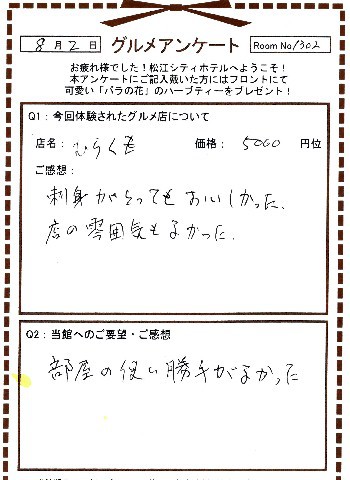 8月2日 グルメアンケート Room No/302
お疲れ様でした!松江シティホテルへようこそ!
本アンケートにご記入戴いた方にはフロントにて
可愛い「バラの花」のハーブティーをプレゼント!
Q1:今回体験されたグルメ店について
店名: 価格: 5000 円位
ご感想:
刺身がとってもおいしかった、
店の雰囲気もよかった.
Q2:当館へのご要望・ご感想
部屋の使い勝手がよかった